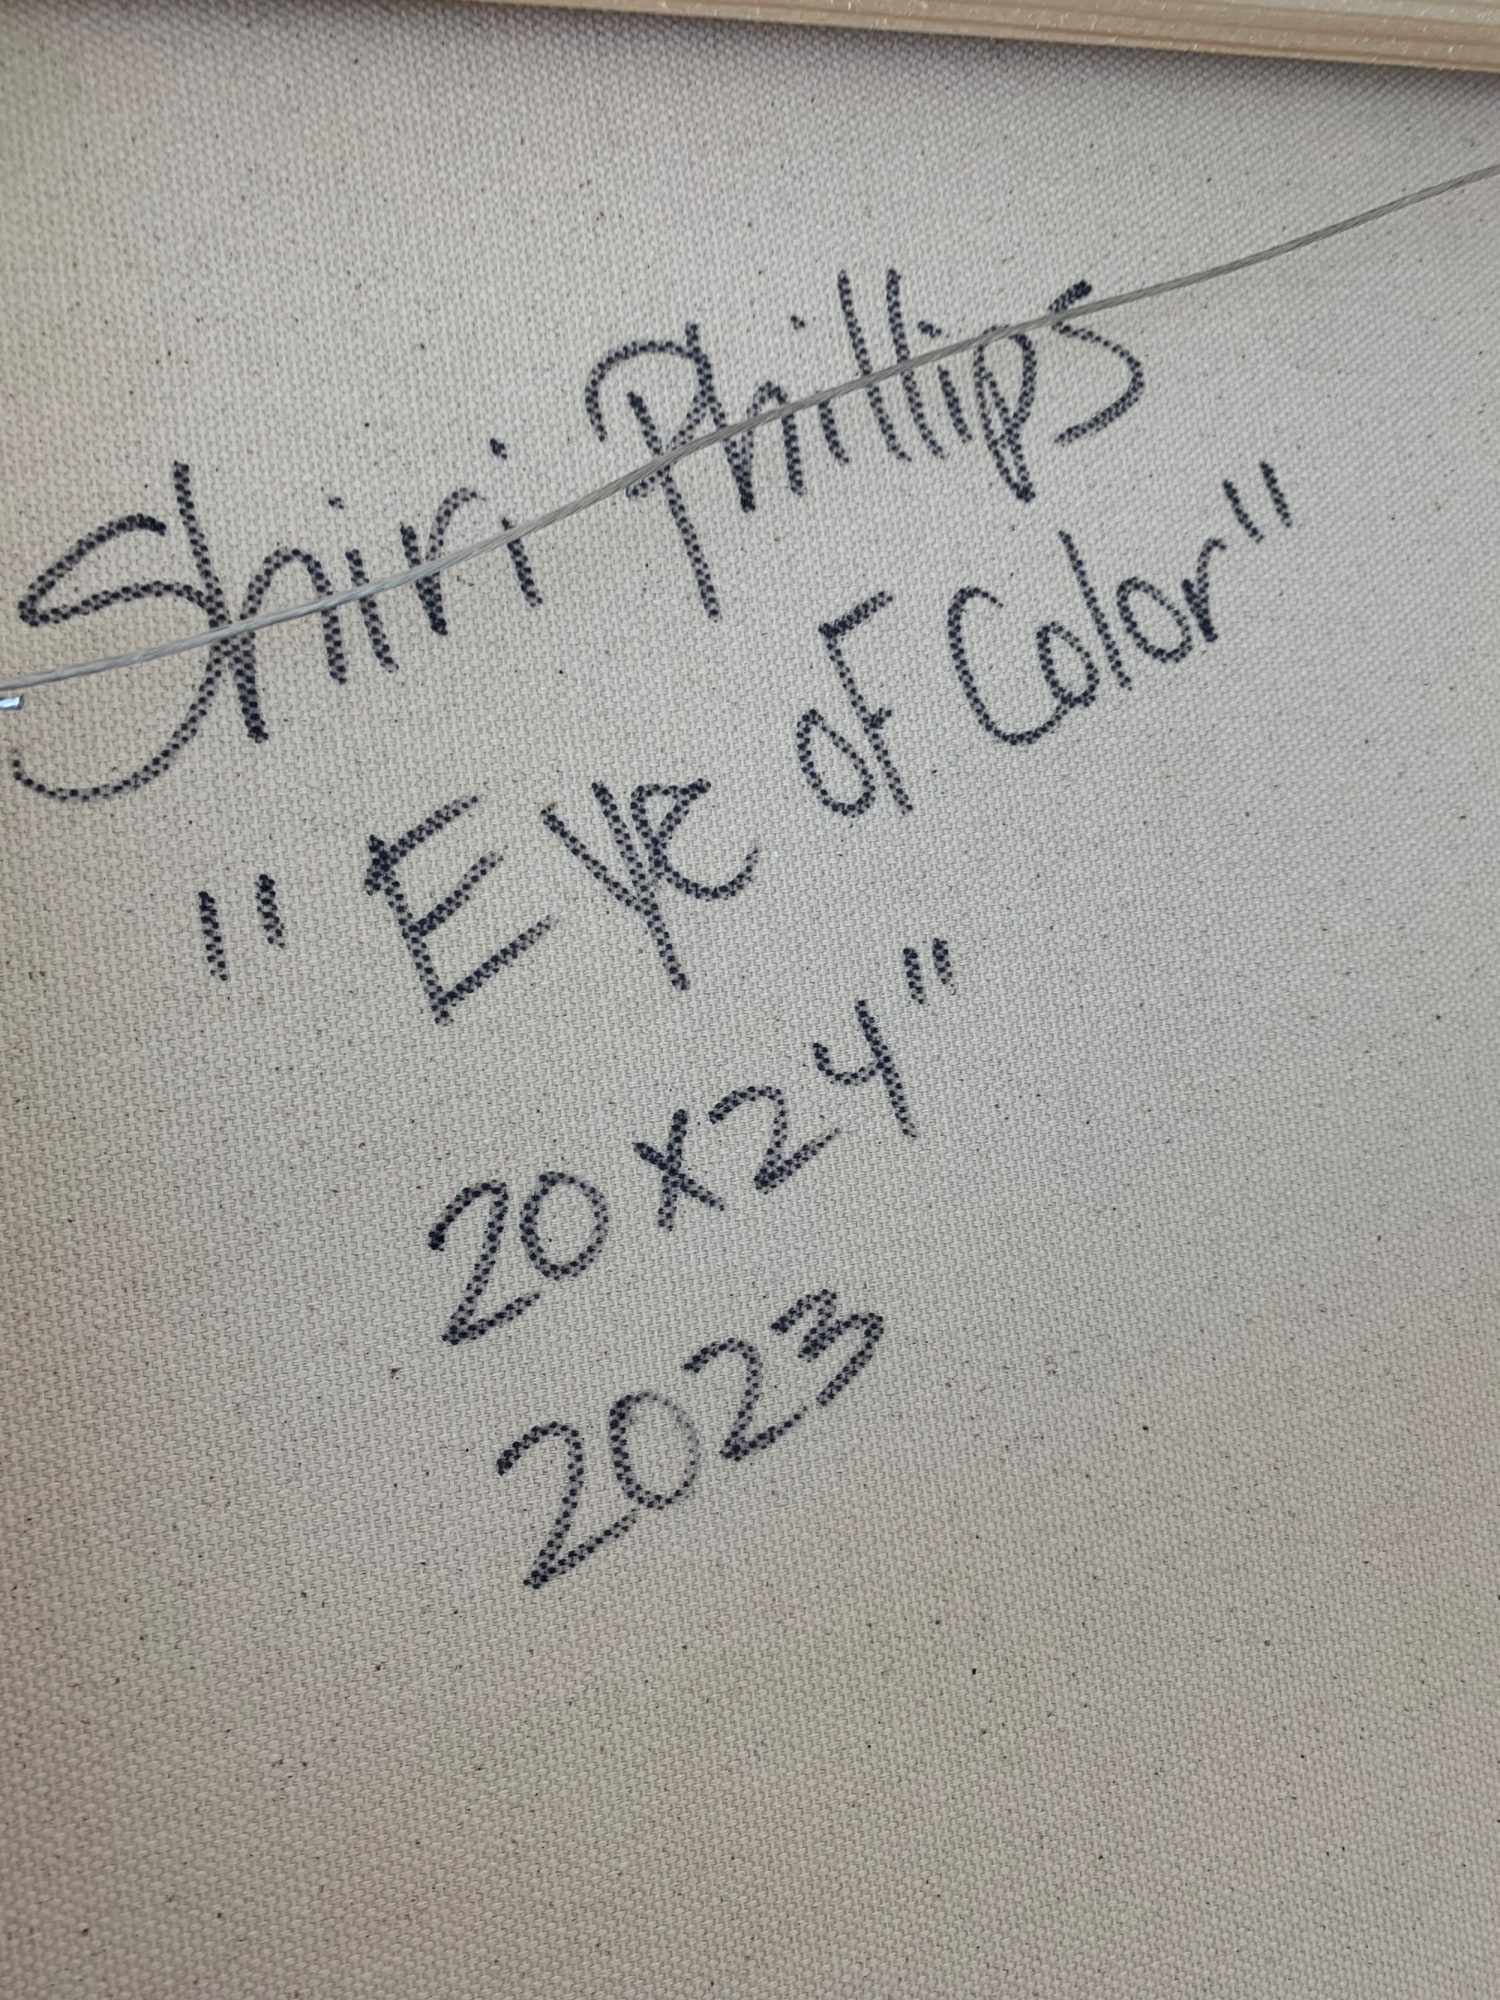 Shiri Phillips
"Eye of Color"
20x24"
2023